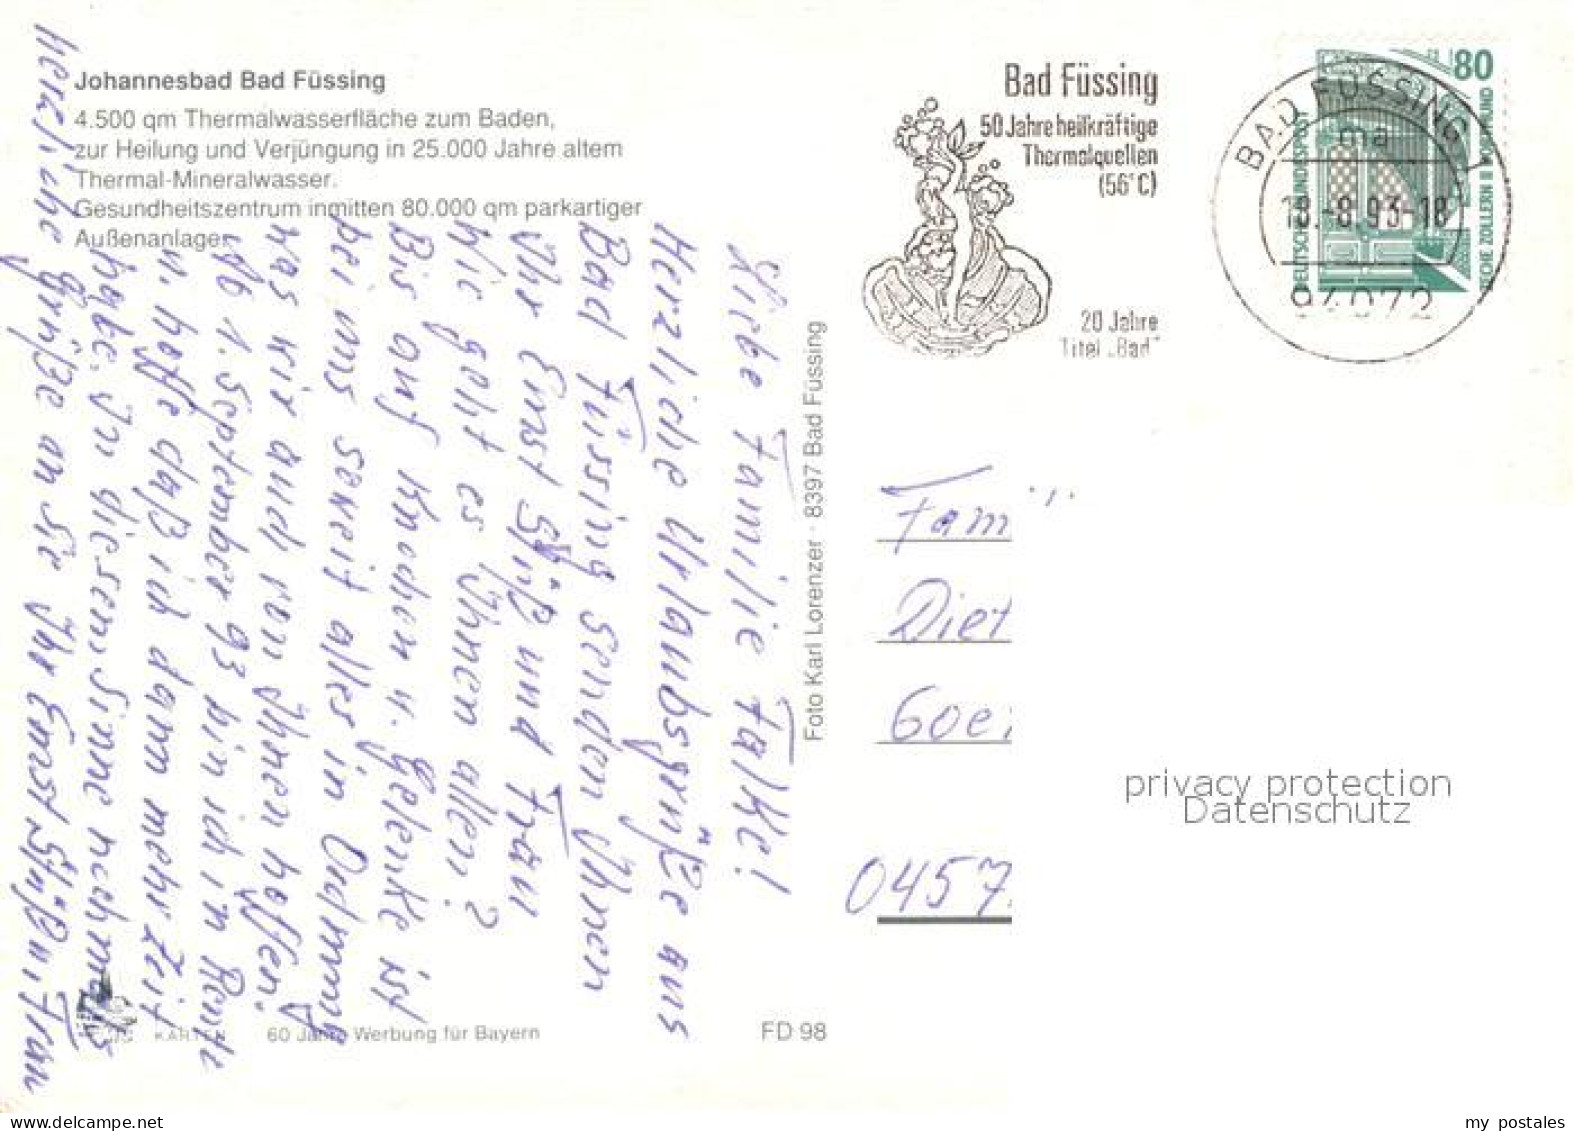 Johannesbad Bad Füssing
4.500 qm Thermalwasserfläche zum Baden,
zur Heilung und Verjüngung in 25.000 Jahre altem
Thermal-Mineralwasser.
Gesundheitszentrum inmitten 80.000 qm parkartiger
Außenanlagen
Liebe Familie Falke!
Herzliche Urlaubsgrüße aus
Bad Füssing senden Ihnen
Ihr Ernst Süß und Frau
Wie geht es Ihnen allen?
Bis auf Knochen u. Gelenke ist
bei uns soweit alles in Ordnung
was wir auch von Ihnen hoffen.
Ab 1. September 93 bin ich in Rente
u. hoffe daß ich dann mehr Zeit
habe. In diesem Sinne nochmals
herzliche Grüße an Sie Ihr Ernst Süß u. Frau
KARTEN
60 Jahre Werbung für Bayern
FD 98
Foto Karl Lorenzer · 8397 Bad Füssing
Bad Füssing
50 Jahre heilkräftige
Thermalquellen
(56°C)
20 Jahre
Titel „Bad"
BAD FÜSSING 1
ma
18.-8.93-18
94072
80
DEUTSCHE BUNDESPOST
ZECHE ZOLLERN II DORTMUND
Fam
Diet
Goe
0457
privacy protection
Datenschutz
my postales